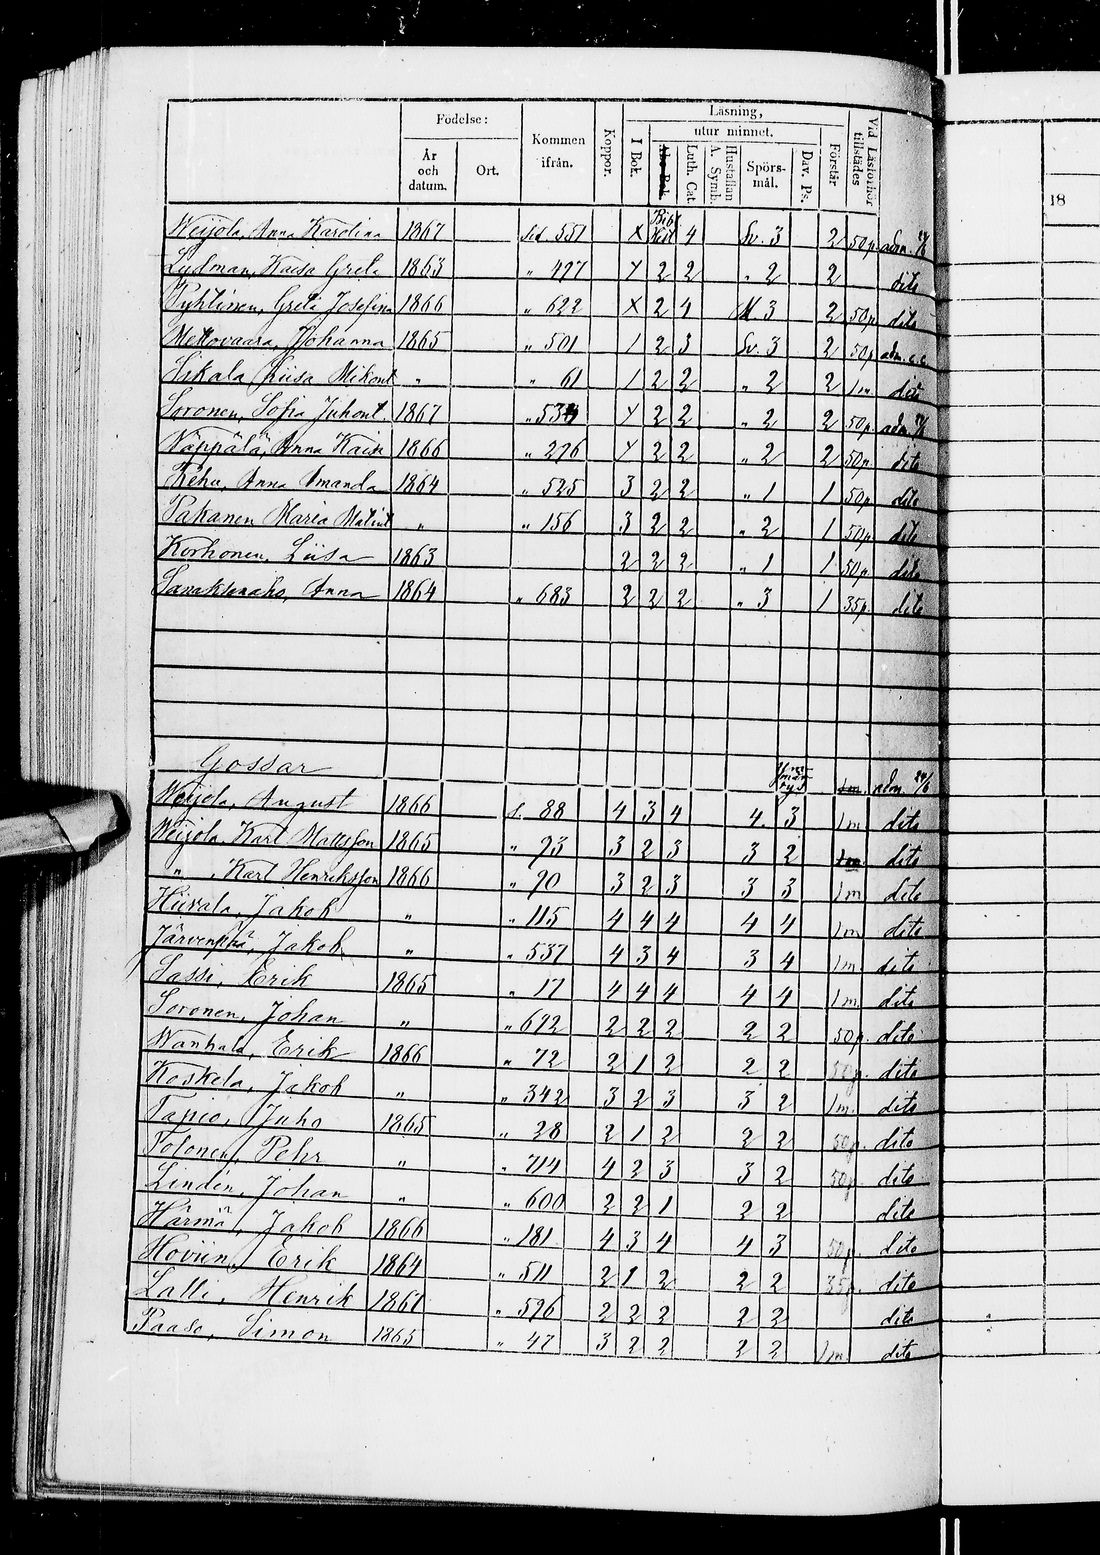 Födelse: Kommen ifrån. Koppor. Läsning, Vid Läsförhör tillstädes
År och datum. Ort. I Bok. utur minnet. Förstår 18
Abc-Bok. Luth. Cat. Hustaflan A. Symb. Spörs-mål. Dav. Ps.
Weijola, Anna Karolina 1867 sid 551 X Bibl Hist 4 Sv. 3 2 50p. adm.
Lydman, Kaisa Greta 1863 " 497 Y 2 2 " 2 2 dito
Pyhtinen, Greta Josefina 1866 " 622 X 2 4 M. 3 2 50p dito
Metsovaara, Johanna 1865 " 501 1 2 3 Sv. 3 2 50p adm.
Sikala, Liisa Mikont " " 61 1 2 2 " 2 2 1m dito
Soronen, Sofia Juhont. 1867 2 2 " 2 2 50p adm.
Näppälä, Anna Kaisa 1866 " 276 Y 2 2 " 2 2 50p. dito
Rehu, Anna Amanda 1864 " 525 3 2 2 " 1 1 50p dito
Pakanen Maria Matint " " 156 3 2 2 " 2 1 50p dito
Korhonen, Liisa 1863 2 2 2 " 1 1 50p dito
Anna 1864 " 683 2 2 2 " 3 1 35p. dito
Gossar adm.
Weijola, August 1866 s. 88 4 3 4 4. 3 1m dito
Weijola, Karl Mattsson 1865 " 93 3 2 3 3 2 1m dito
" , Karl Henriksson 1866 " 90 3 2 3 3 3 1m dito
Hiivala, Jakob " " 115 4 4 4 4 4 1m dito
Järvenpää, Jakob " " 537 4 3 4 3 4 1m dito
Sassi, Erik 1865 " 17 4 4 4 4 4 1m dito
Soronen, Johan " " 692 2 2 2 2 2 50p. dito
Wanhala, Erik 1866 " 72 2 1 2 2 2 50p. dito
Koskela, Jakob " " 342 3 2 3 3 2 1m. dito
Tapio, Juho 1865 " 28 2 1 2 2 2 50p. dito
Polonen, Pehr " " 714 4 2 3 3 2 50p. dito
Linden, Johan " " 600 2 2 1 2 2 dito
Härmä, Jakob 1866 " 181 4 3 4 4 3 50p. dito
Erik 1864 " 511 2 1 2 2 2 35p. dito
Lalli, Henrik 1861 " 596 2 2 2 2 2 dito
Paaso, Simon 1865 " 47 3 2 2 2 2 1m dito